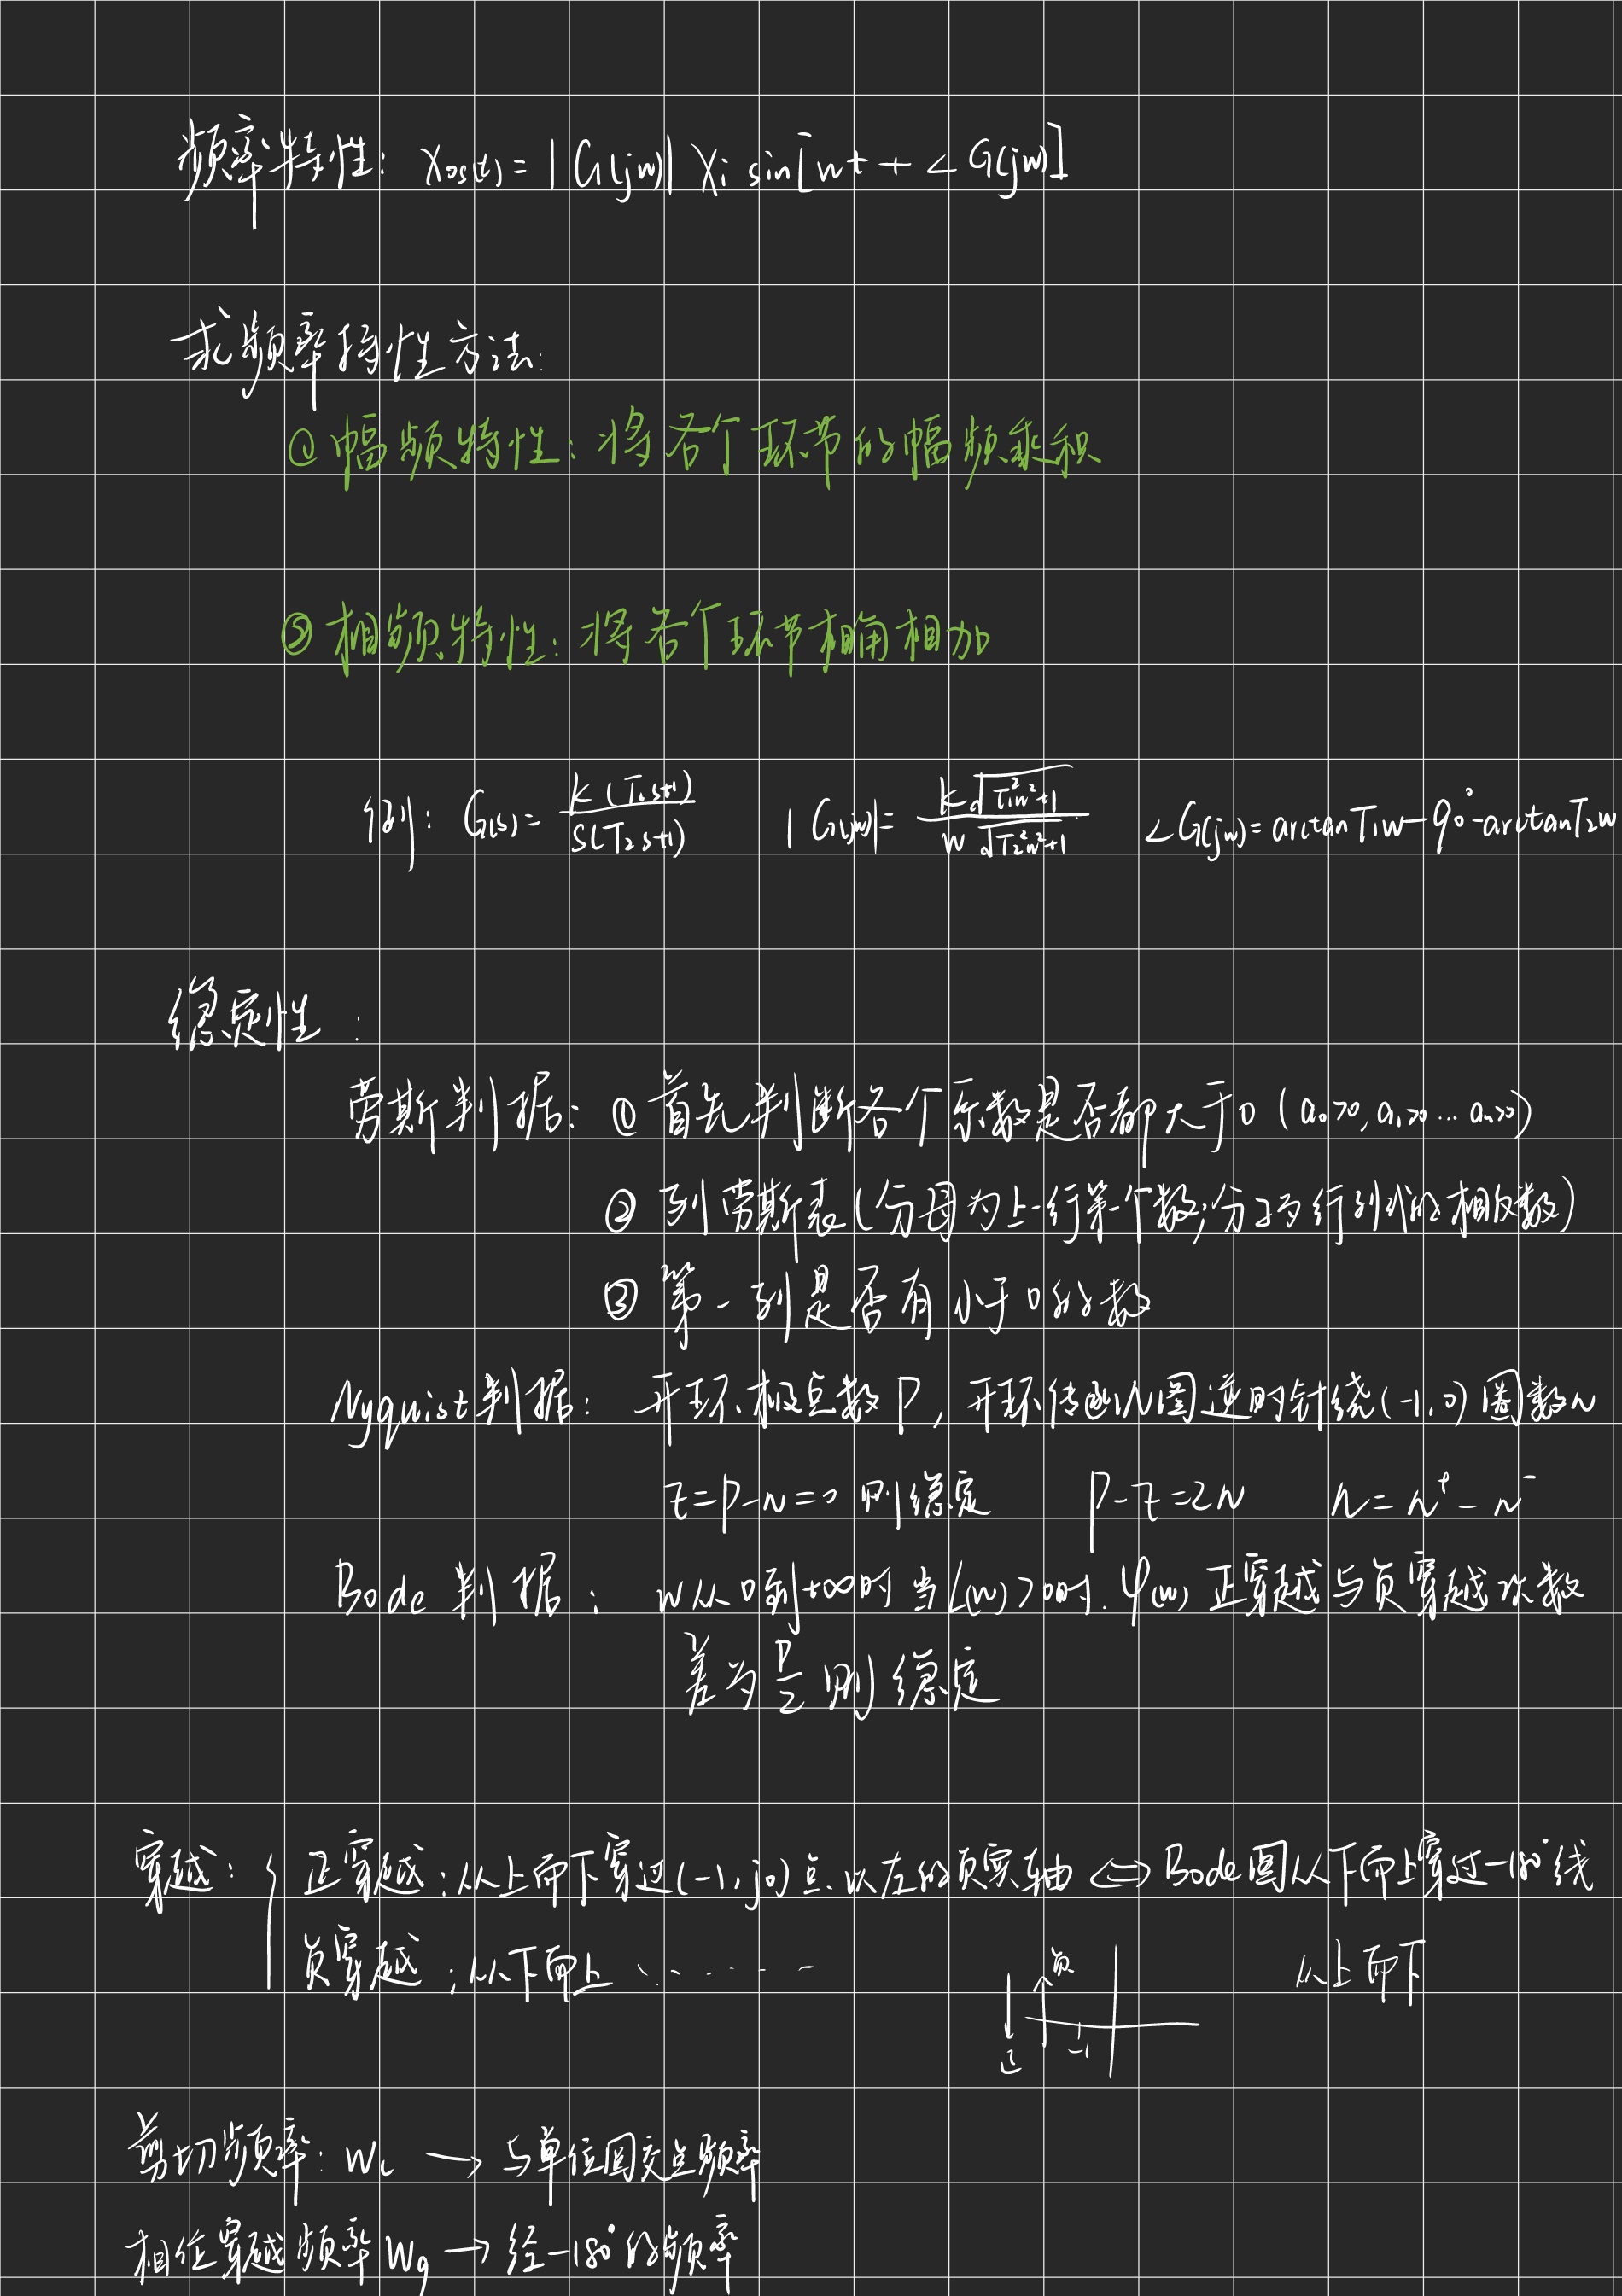 频率特性: Xos(t) = |G(jw)| Xi sin[wt + ∠G(jw)]
求频率特性方法:
① 幅频特性: 将各个环节的幅频乘积
② 相频特性: 将各个环节相角相加
例: G(s) = K(T₁s+1) / S(T₂s+1) |G(jw)| = K√(T₁²w²+1) / w√(T₂²w²+1) ∠G(jw) = arctanT₁w - 90° - arctanT₂w
稳定性:
劳斯判据: ① 首先判断各个系数是否都大于0 (a₀>0, a₁>0 … aₙ>0)
② 列劳斯表(分母为上一行第一个数; 分子为行列式的相反数)
③ 第一列是否有小于0的数
Nyquist判据: 开环极点数P, 开环传函N图逆时针绕(-1,0)圈数N
Z=P-N=0 则稳定 P-Z=2N N=N⁺-N⁻
Bode判据: w从0到+∞时 当L(w)>0时. φ(w) 正穿越与负穿越次数
差为P/2则稳定
穿越: { 正穿越: 从上而下穿过(-1, j0)点以左的负实轴 ⇔ Bode图从下而上穿过-180°线
负穿越: 从下而上 ······ 从上而下
负
正 -1
剪切频率: Wc → 与单位圆交点频率
相位穿越频率Wg → 经-180°的频率